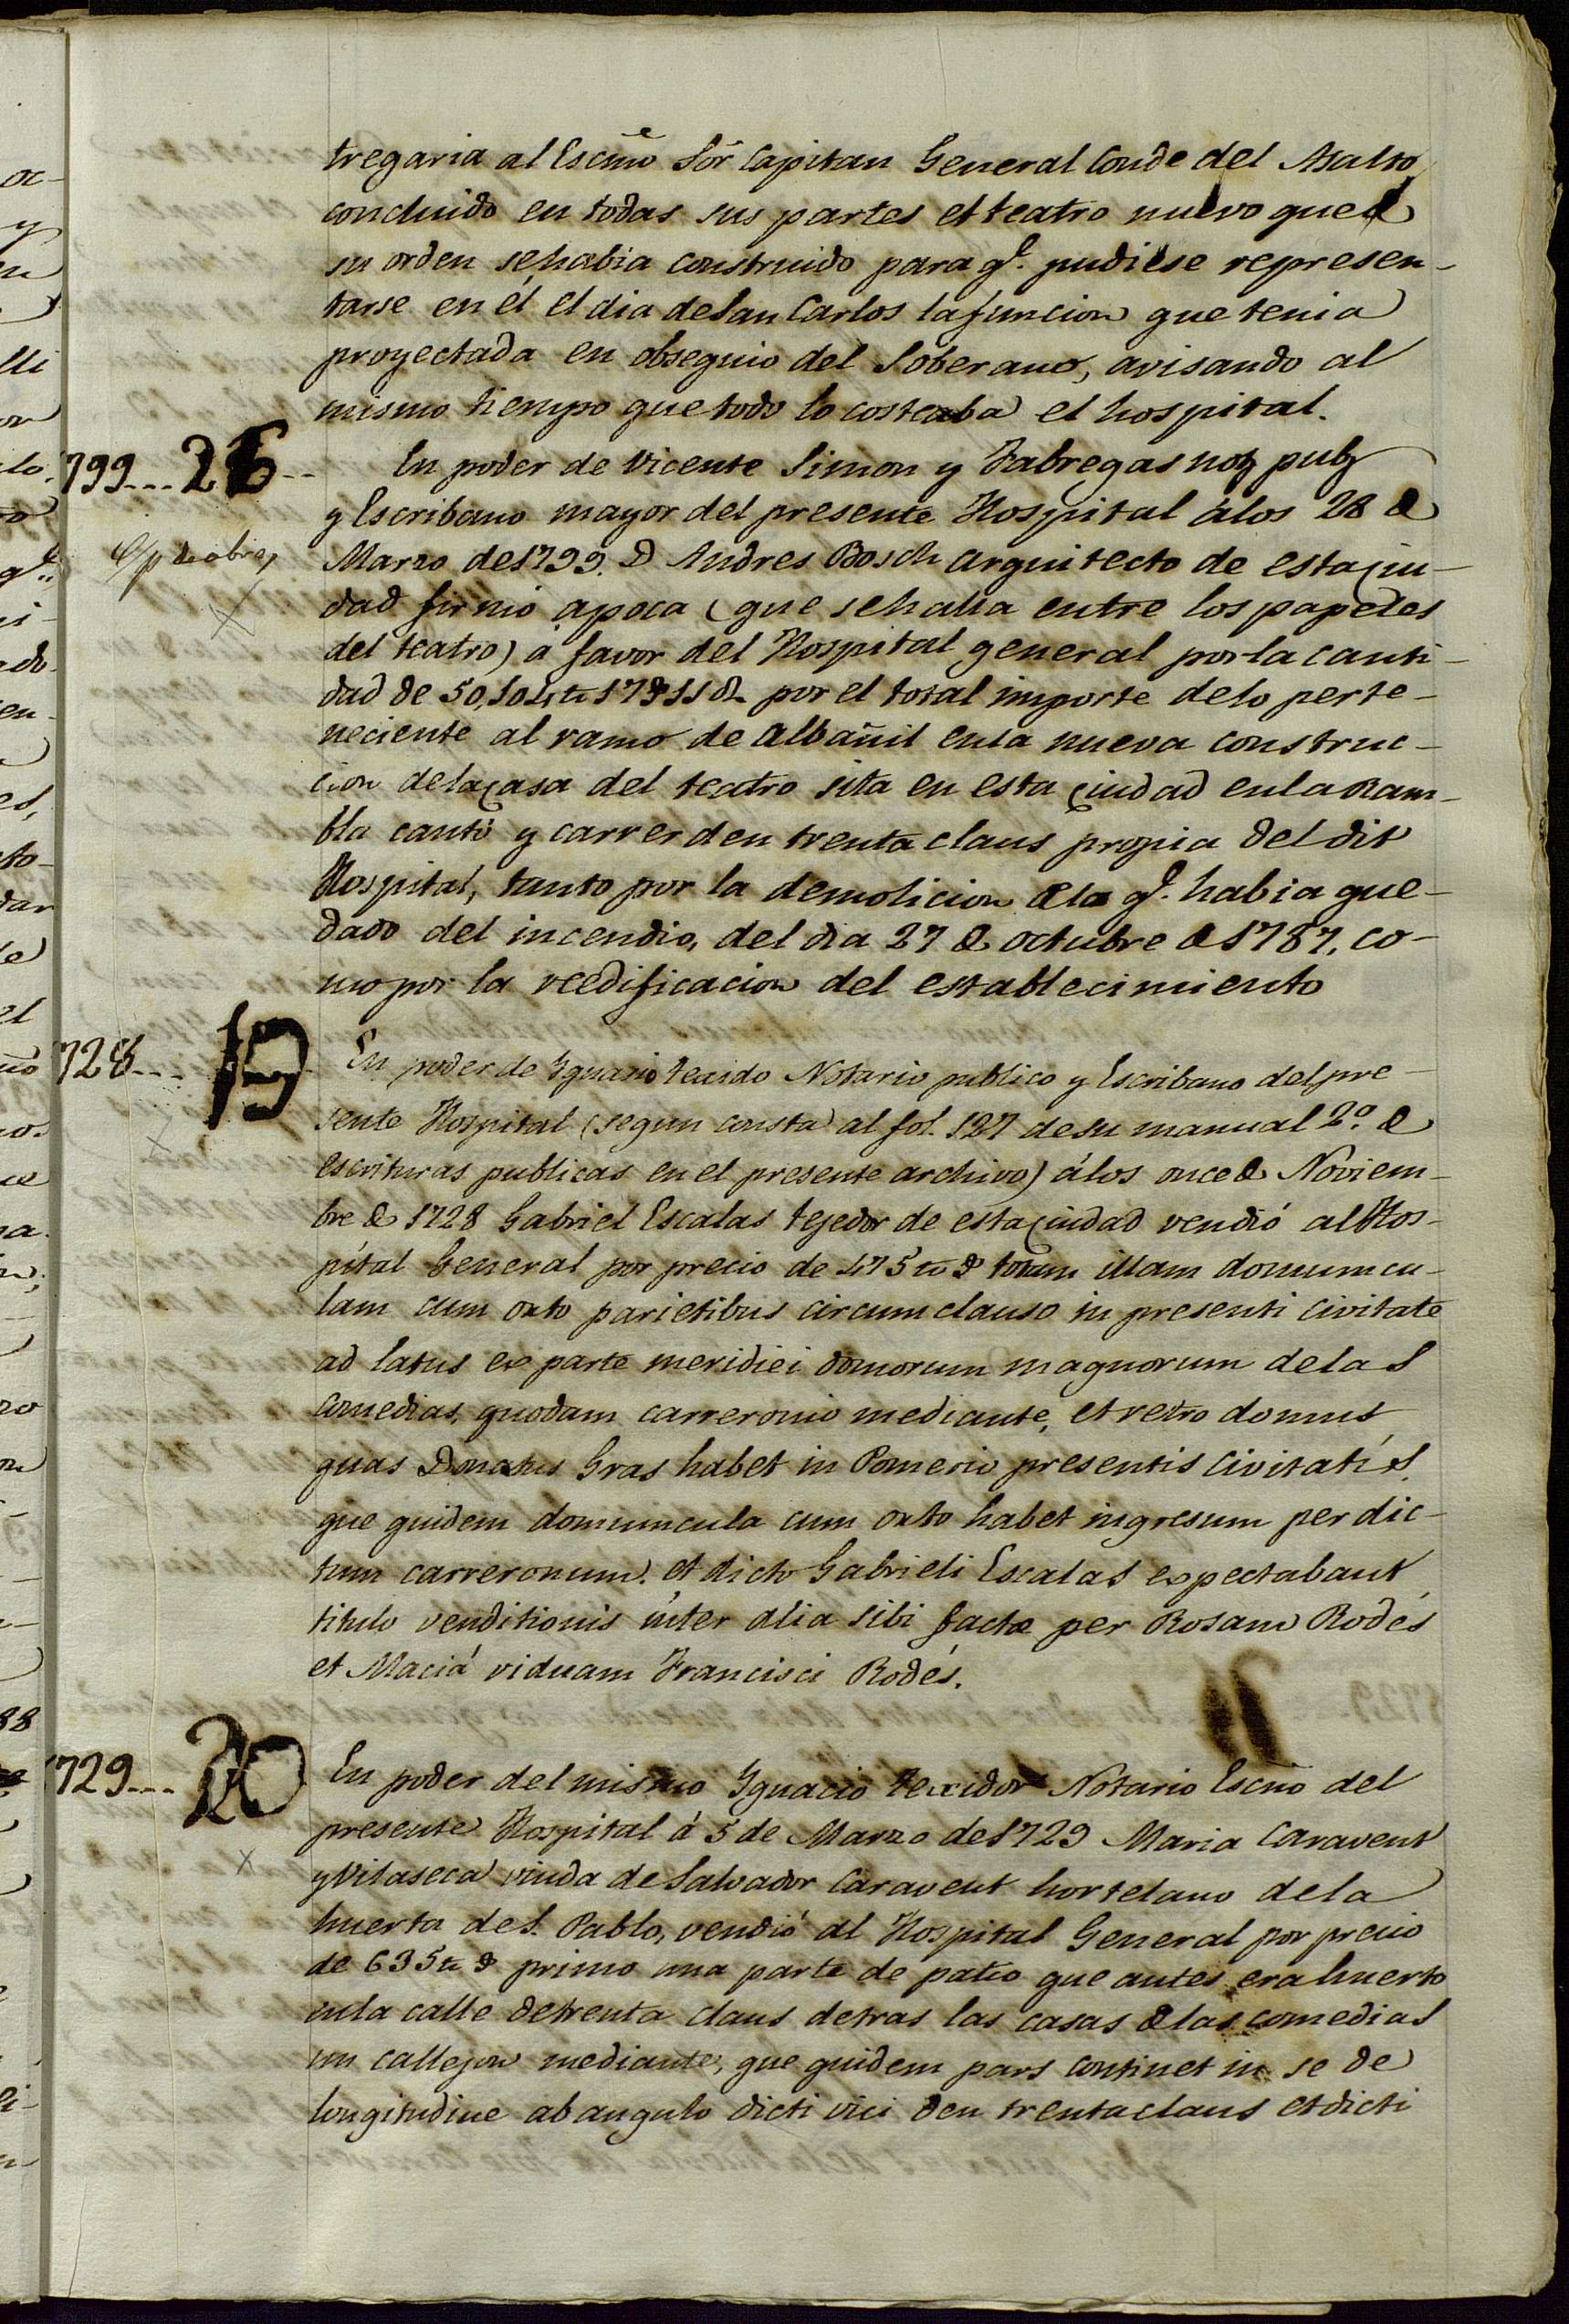 tregaria al Escmõ Sõr Capitan General Conde del Asalto
concluido en todas sus partes el teatro nuevo que de
su orden se habia construido para qe. pudiese represen-
tarse en él el dia de San Carlos la funcion que tenia
proyectada en obsequio del Soberano, avisando al
mismo tiempo que todo lo costeaba el hospital.
1799... 26.. En poder de Vicente Simon y Fabregas noty puby
y Escribano mayor del presente Hospital á los 28 de
C/p de obras Marzo de 1799. D Andres Bosch arquitecto de esta Ciu-
X dad firmó apoca (que se halla entre los papeles
del teatro) á favor del Hospital general por la canti-
dad de 50,104 tt 17 § 11 d. por el total importe de lo perte-
neciente al ramo de Albañil en la nueva construc-
cion de la Casa del teatro sita en esta Ciudad en la Ram-
bla cantó y carrer den trenta claus propia del dit
Hospital, tanto por la demolicion de la qe. habia que-
dado del incendio, del dia 27 de octubre de 1787, co-
mo por la reedificacion del establecimiento
1728... 19 En poder de Ygnacio Texido Notario publico y Escribano del pre-
sente Hospital (segun consta al fol. 127 de su manual 2º. de
X escrituras publicas en el presente archivo) á los once de Noviem-
bre de 1728 Gabriel Escalas tejedor de esta Ciudad vendió al Hos-
pital General por precio de 475 tt § totam illam domumcu-
lam cum orto parietibus circumclauso in presenti civitate
ad latus ex parte meridiei domorum magnorum de las
Comedias, quodam carreronio mediante, et retro domus
quas Donatus Gras habet in Pomerio presentis civitatis
que quidem domuncula cum orto habet ingresum per dic-
tum carreronum. et dicto Gabrieli Escalas expectabant
titulo venditionis inter alia sibi factæ per Rosam Rodés
et Maciá viduam Francisci Rodés.
1729... 20 En poder del mismo Ygnacio Texidor Notario Escño del
presente Hospital á 5 de Marzo de 1729 Maria Caravent
X y Vilaseca viuda de Salvador Caravent hortelano de la
huerta de S. Pablo, vendió al Hospital General por precio
de 635 tt § primo una parte de patio que antes era huerto
en la calle de trenta claus detras las casas de las comedias
un callejon mediante, que quidem pars continet in se de
longitudine ab angulo dicti vici den trentaclaus et dicti